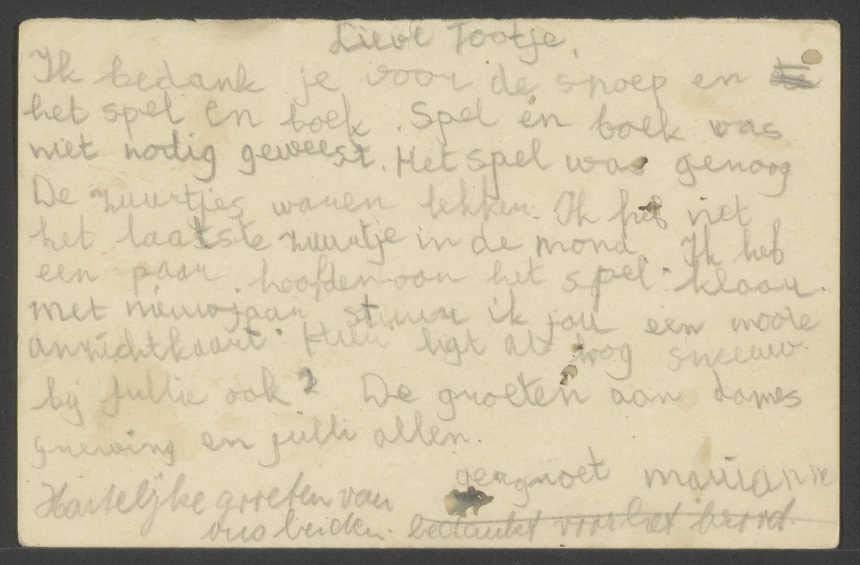 Lieve Tootje,
Ik bedank je voor de snoep en
het spel en boek. Spel en boek was
niet nodig geweest. Het spel was genoog
De zuurtjes waren lekker. Ik heb net
het laatste zuurtje in de mond. Ik heb
een paar hoofden van het spel klaar.
met nieuwjaar stuur ik jou een mooie
anzichtkaart. Hier ligt al nog sneeuw
bij jullie ook? De groeten aan dames
en julli allen.
gengroet Marianne
Hartelijke groeten van
ons beiden. bedankt voor het brood.